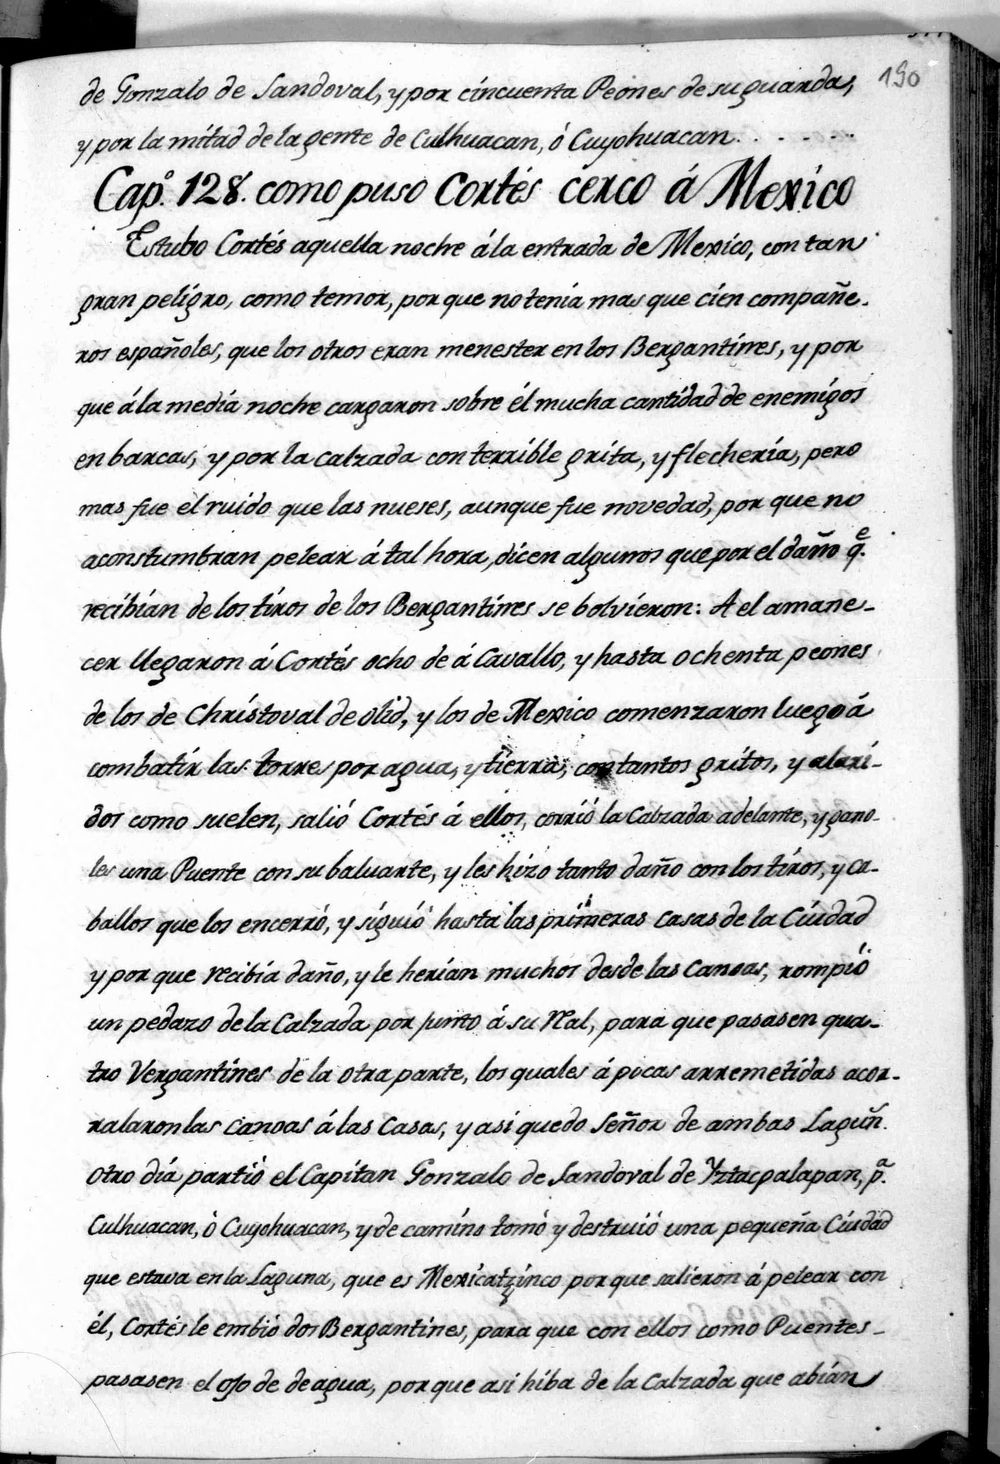 190
de Gonzalo de Sandoval, y por cincuenta Peones de su guarda,
y por la mitad de la gente de Culhuacan, ò Cuyohuacan . . . . . .
Cap.º 128. como puso Cortés cerco á Mexico
Estubo Cortés aquella noche á la entrada de Mexico, con tan
gran peligro, como temor, por que no tenia mas que cien compañe-
ros españoles, que los otros eran menester en los Bergantines, y por
que á la media noche cargaron sobre él mucha cantidad de enemigos
en barcas, y por la calzada con terrible grita, y flecheria, pero
mas fue el ruido que las nueses, aunque fue novedad, por que no
aconstumbran pelear á tal hora, dicen algunos que por el daño q.e
recibian de los tiros de los Bergantines se bolvieron: A el amane-
cer llegaron á Cortés ocho de á Cavallo, y hasta ochenta peones
de los de Christoval de olid, y los de Mexico comenzaron luego á
combatir las torres por agua, y tierra, con tantos gritos, y alari-
dos como suelen, salió Cortés á ellos, corrió la Calzada adelante, y gano-
les una Puente con su baluarte, y les hizo tanto daño con los tiros, y ca-
ballos que los encerró, y siguió hasta las primeras casas de la Ciudad
y por que recibia daño, y le herian muchos desde las Canoas, rompió
un pedazo de la Calzada por junto á su Rl̃al, para que pasasen qua-
tro Vergantines de la otra parte, los quales á pocas arremetidas acor-
ralaron las canoas á las Casas, y asi quedo Señor de ambas Laguñ.
Otro dia partiò el Capitan Gonzalo de Sandoval de Yztacpalapan, p.a
Culhuacan, ò Cuyohuacan, y de camino tomó y destruió una pequeña Ciudad
que estava en la Laguna, que es Mexicatzinco por que salieron á pelear con
él, Cortés le embió dos Bergantines, para que con ellos como Puentes-
pasasen el ojo de de agua, por que asi hiba de la Calzada que abian